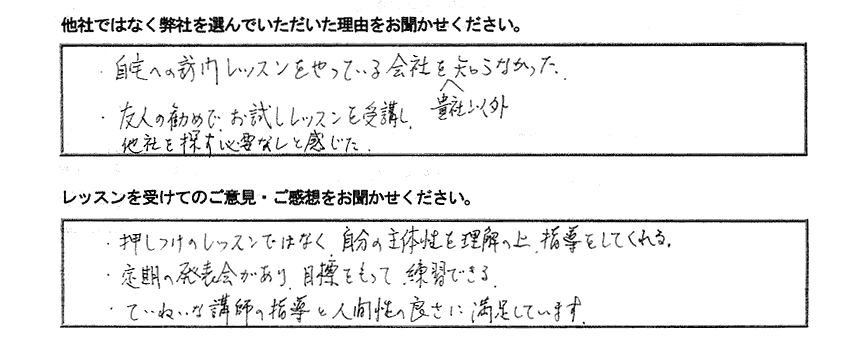 他社ではなく弊社を選んでいただいた理由をお聞かせください。
・自宅への訪問レッスンをやっている会社を知らなかった.
貴社以外
・友人の勧めで、お試しレッスンを受講し、
他社を探す必要なしと感じた.
レッスンを受けてのご意見・ご感想をお聞かせください。
・押しつけのレッスンではなく 自分の主体性を理解の上、指導をしてくれる。
・定期の発表会があり、目標をもって 練習できる.
・ていねいな講師の指導と人間性の良さに満足しています.